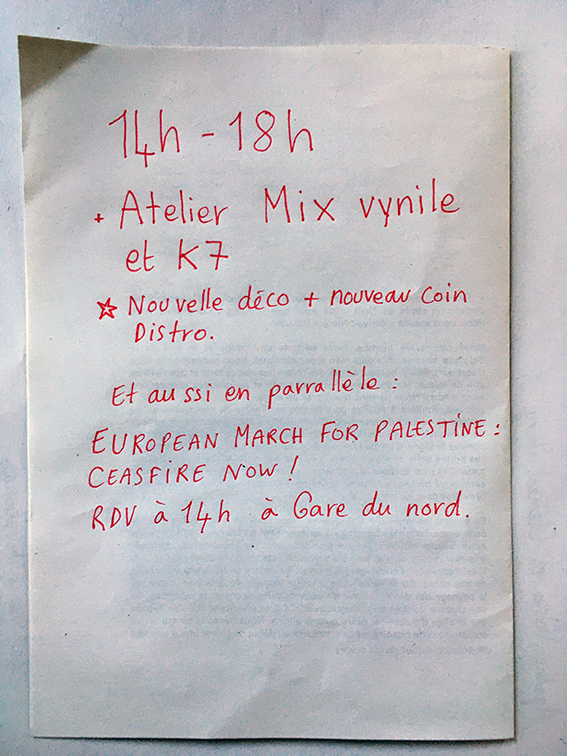 14h - 18h
+ Atelier Mix vynile
et K7
☆ Nouvelle déco + nouveau coin
Distro.
Et aussi en parrallèle :
EUROPEAN MARCH FOR PALESTINE :
CEASFIRE NOW !
RDV à 14h à Gare du nord.